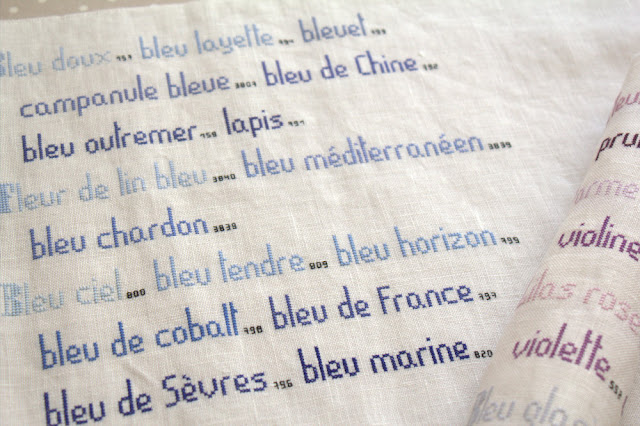 Bleu doux bleu layette bleuet
campanule bleue bleu de Chine
bleu outremer lapis
Fleur de lin bleu 3840 bleu méditerranéen 3839
bleu chardon
Bleu ciel 800 bleu tendre 809 bleu horizon 799
bleu de cobalt 798 bleu de France 797
bleu de Sèvres 796 bleu marine 820
violine
lilas rose
violette